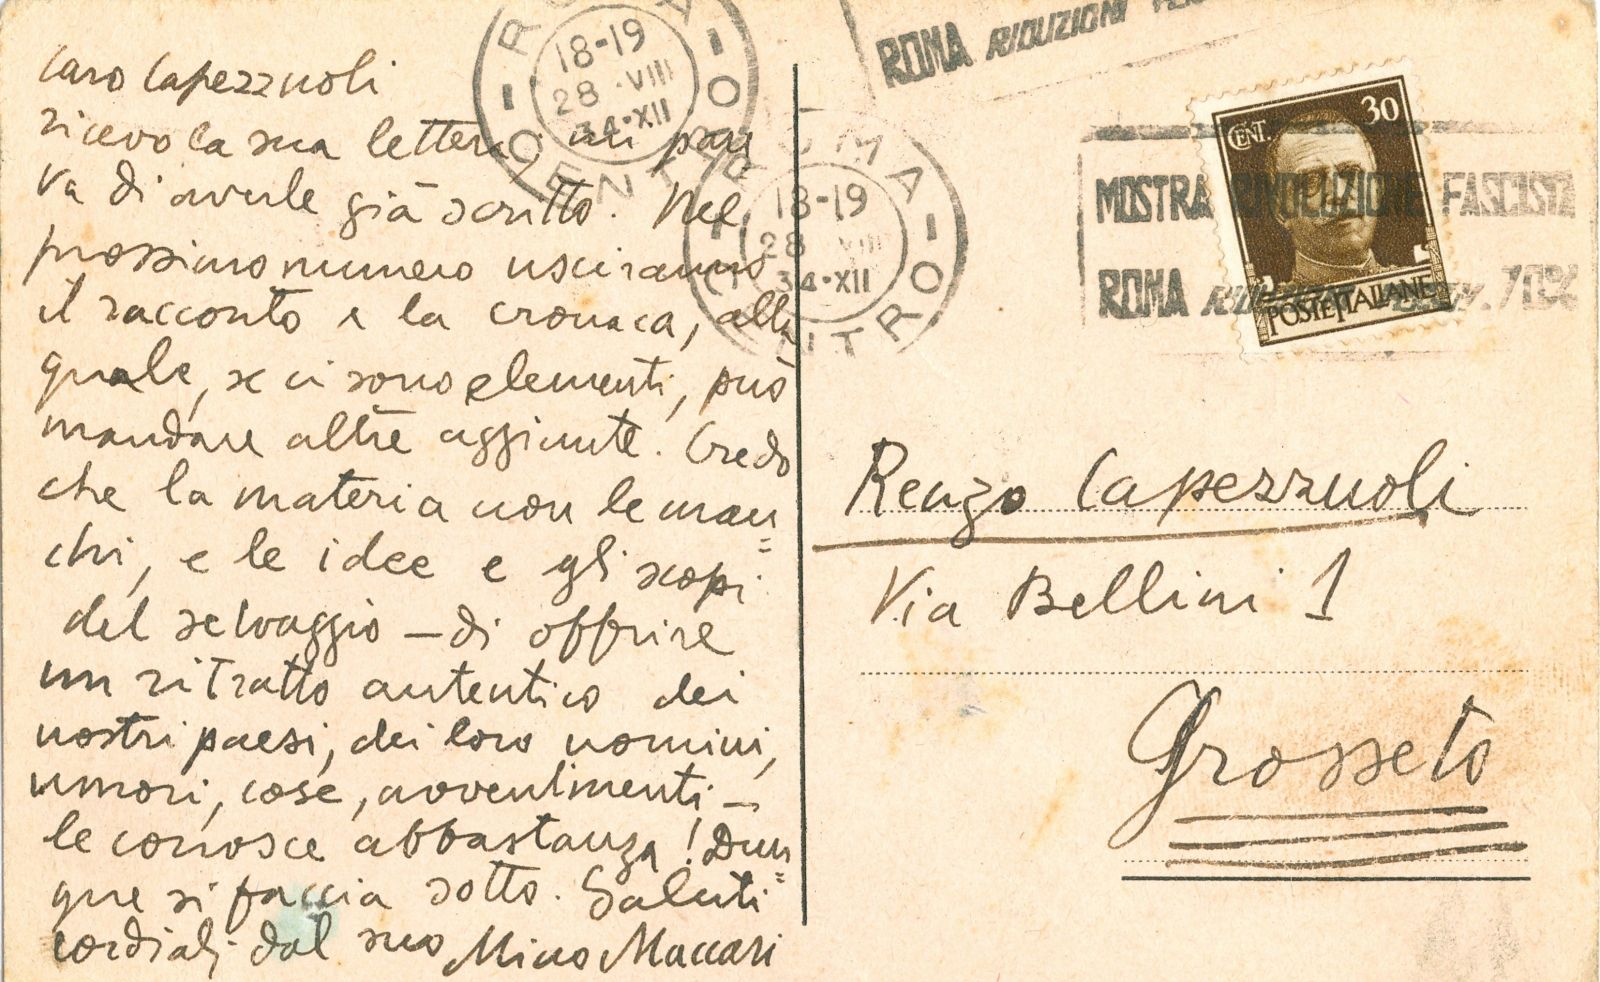 Caro Capezzuoli
ricevo la sua lettera, mi pare
va di averle già scritto. Nel
prossimo numero usciranno
il racconto e la cronaca, alla
quale, se ci sono elementi, può
mandare altre aggiunte. Credo
che la materia non le man=
chi, e le idee e gli scopi
del selvaggio — di offrire
un ritratto autentico dei
nostri paesi, dei loro uomini,
umori, cose, avvenimenti —
le conosce abbastanza! Dun=
que si faccia sotto. Saluti
cordiali dal suo Mino Maccari
ROMA CENTRO
18-19
28·VIII
34·XII
ROMA CENTRO
18-19
28 VIII
34·XII
ROMA RIDUZIONI
CENT. 30
POSTE ITALIANE
MOSTRA RIVOLUZIONE FASCISTA
ROMA
Renzo Capezzuoli
Via Bellini 1
Grosseto